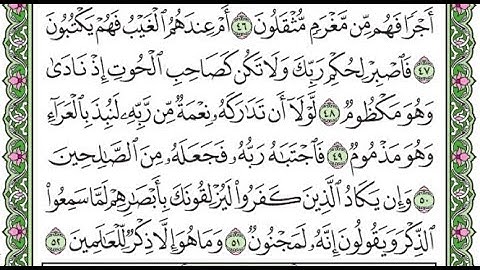 أَجْرًا فَهُم مِّن مَّغْرَمٍ مُّثْقَلُونَ ٤٦ أَمْ عِندَهُمُ الْغَيْبُ فَهُمْ يَكْتُبُونَ
٤٧ فَاصْبِرْ لِحُكْمِ رَبِّكَ وَلَا تَكُن كَصَاحِبِ الْحُوتِ إِذْ نَادَىٰ
وَهُوَ مَكْظُومٌ ٤٨ لَّوْلَا أَن تَدَارَكَهُ نِعْمَةٌ مِّن رَّبِّهِ لَنُبِذَ بِالْعَرَاءِ
وَهُوَ مَذْمُومٌ ٤٩ فَاجْتَبَاهُ رَبُّهُ فَجَعَلَهُ مِنَ الصَّالِحِينَ
٥٠ وَإِن يَكَادُ الَّذِينَ كَفَرُوا لَيُزْلِقُونَكَ بِأَبْصَارِهِمْ لَمَّا سَمِعُوا
الذِّكْرَ وَيَقُولُونَ إِنَّهُ لَمَجْنُونٌ ٥١ وَمَا هُوَ إِلَّا ذِكْرٌ لِّلْعَالَمِينَ ٥٢